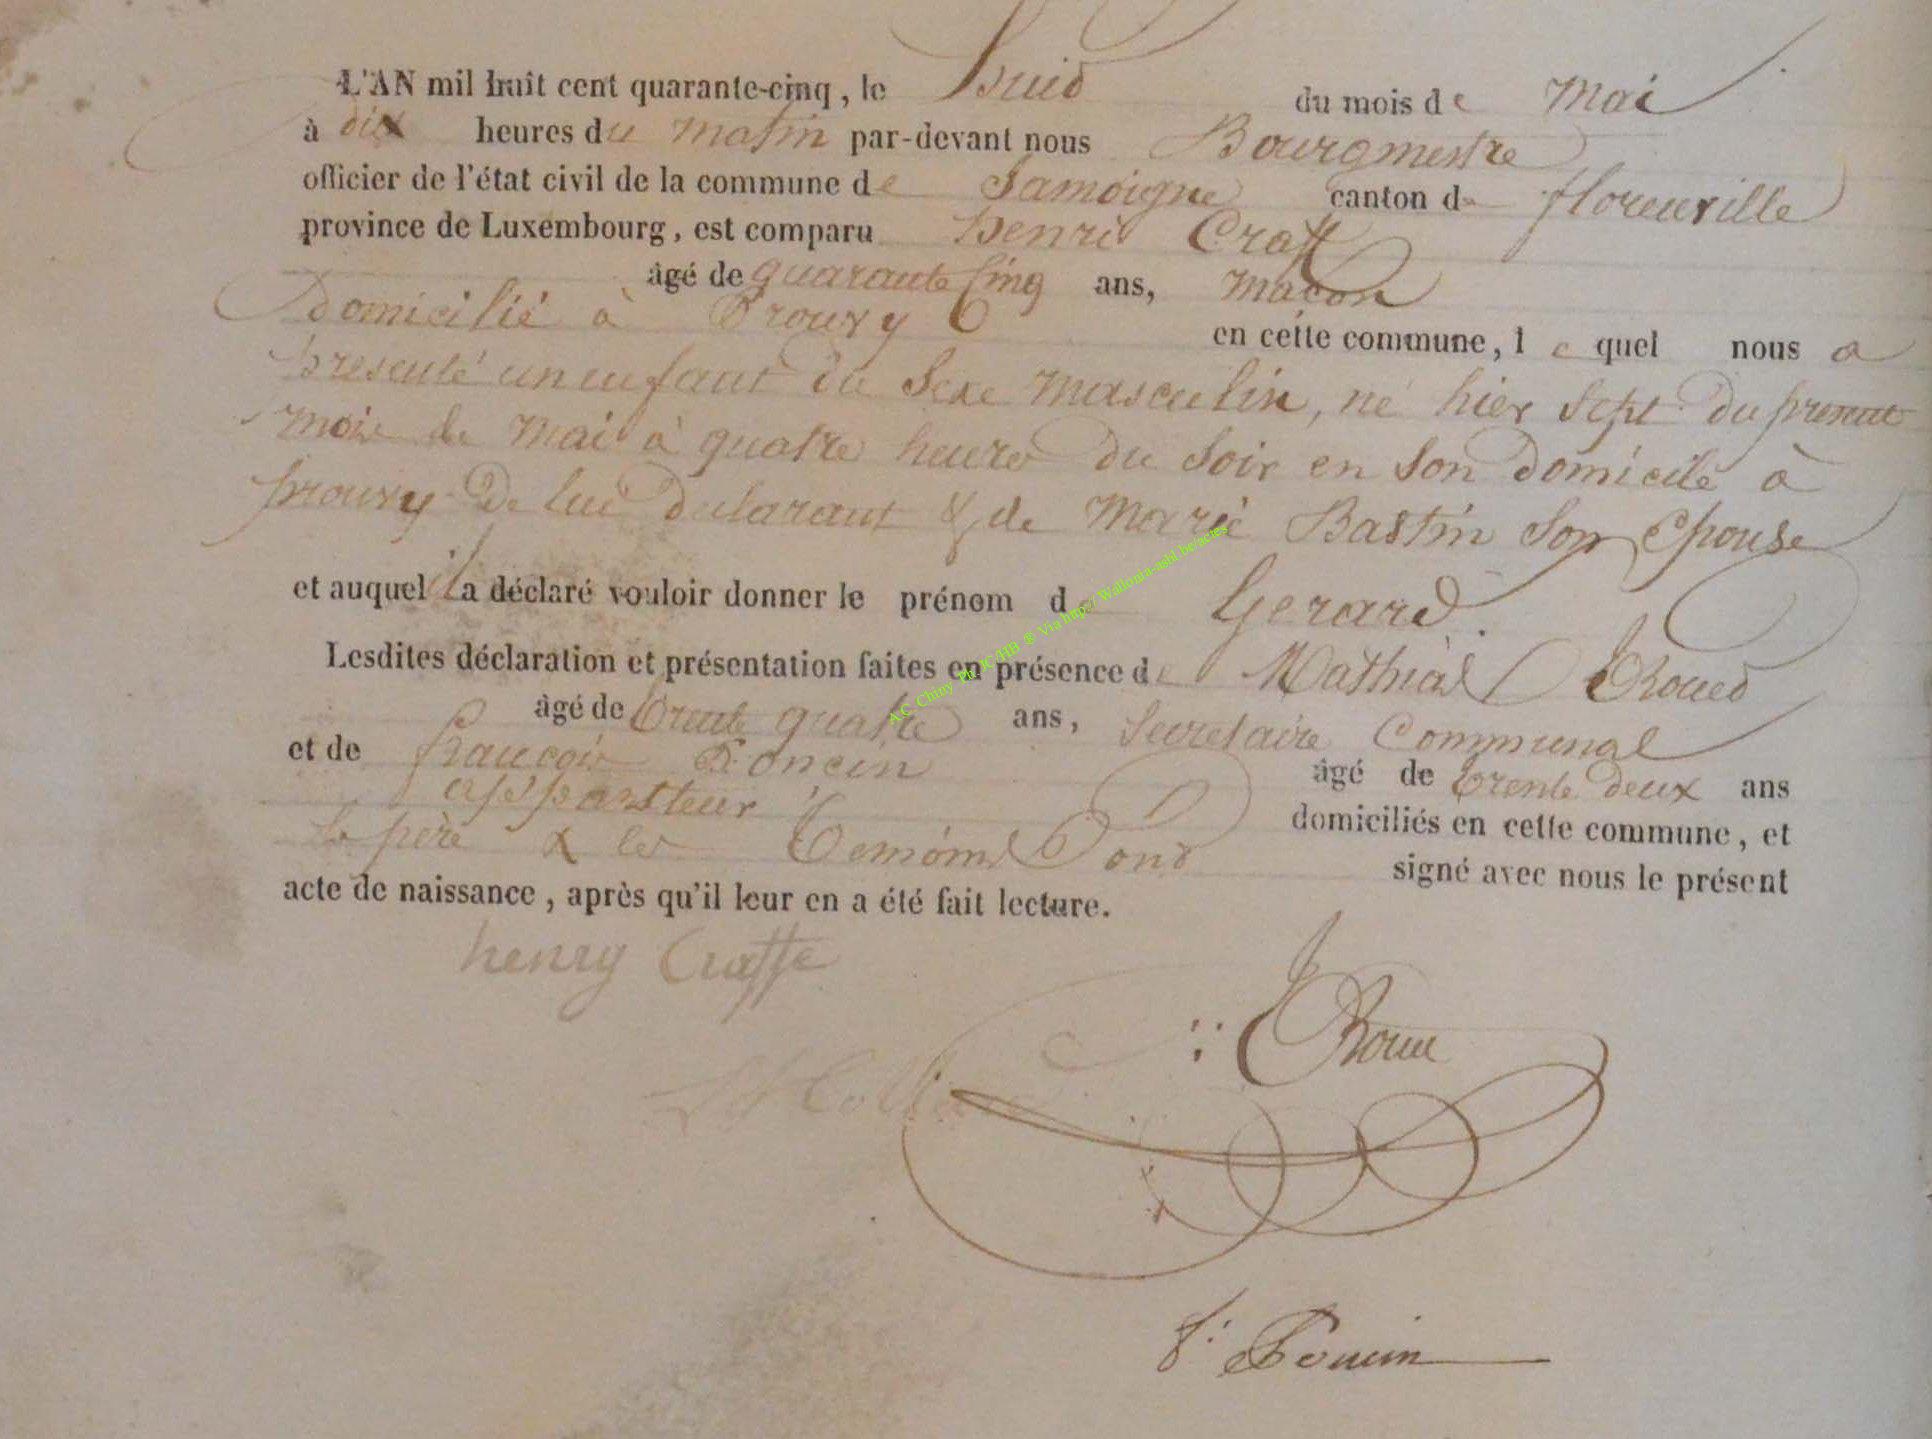 L'AN mil huit cent quarante-cinq, le huit du mois de Mai
à dix heures du matin par-devant nous Bourgmestre
officier de l'état civil de la commune de Jamoigne canton de florenville
province de Luxembourg, est comparu henri Craff
âgé de quarante Cinq ans, Maçon
Domicilié à Prouvy en cette commune, le quel nous a
présenté un enfant du Sexe Masculin, né hier Sept du présent
mois de Mai à quatre heures du Soir en Son Domicile à
prouvy De lui Déclarant & de Marie Bastin Son Epouse
et auquel il a déclaré vouloir donner le prénom de Gerard.
Lesdites déclaration et présentation faites en présence de Mathias
âgé de trente quatre ans, Secretaire Communal
et de françois Poncin âgé de trente deux ans
appariteur domiciliés en cette commune, et
le père & les Témoins ont signé avec nous le présent
acte de naissance, après qu'il leur en a été fait lecture.
henry Craffe
f: Poncin
AC Chiny PhJC/HB ® Via http://Wallonia-asbl.be/actes